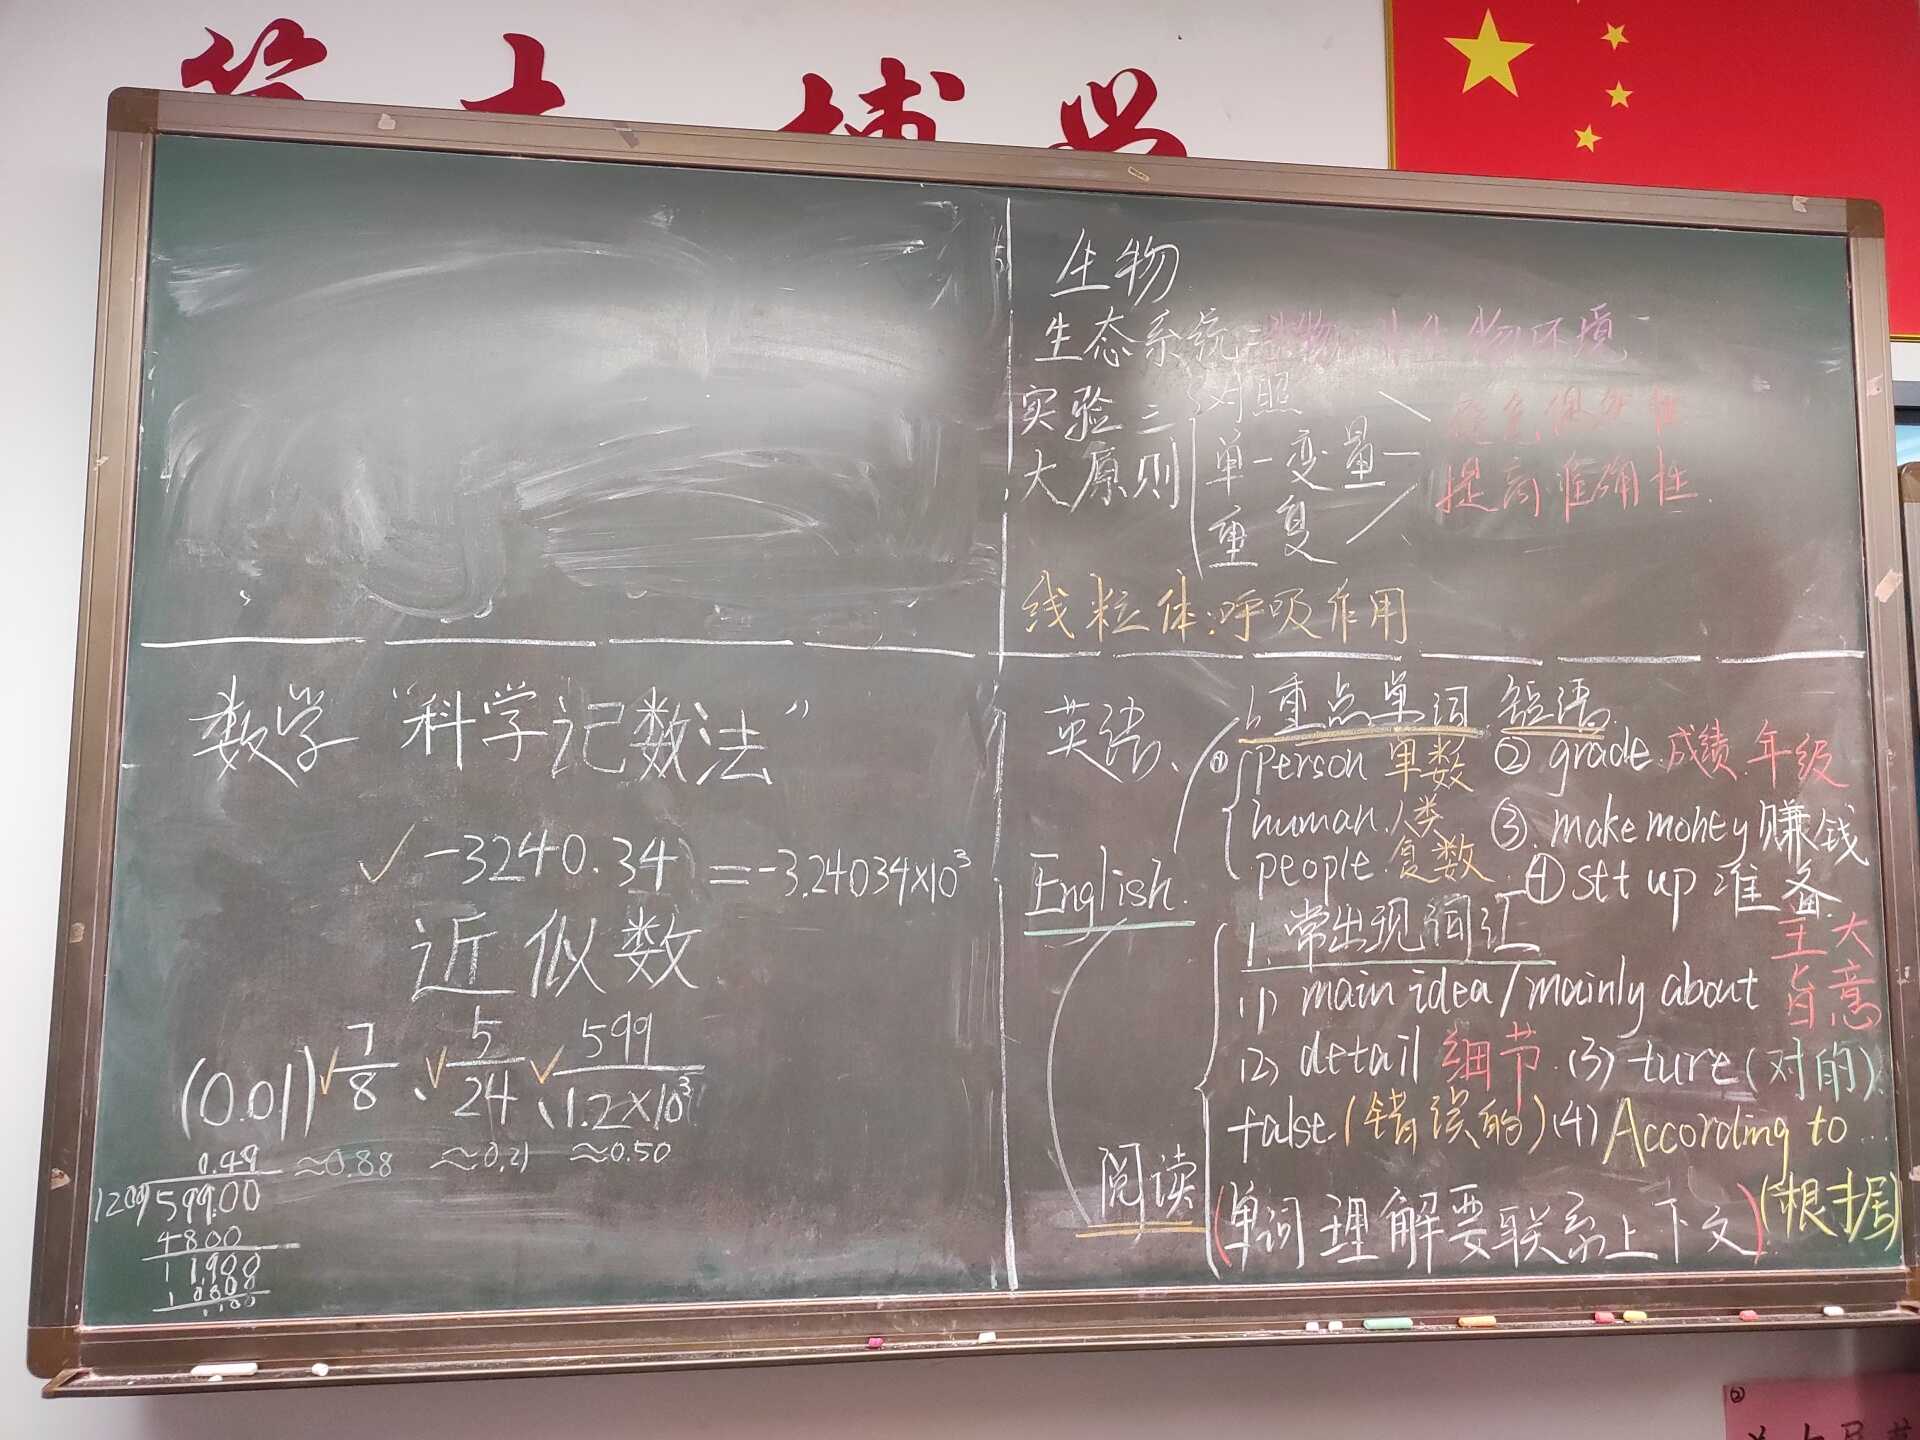 博学
生物
生态系统=生物+非生物环境
实验三大原则
对照
单一变量
重复
避免偶然性
提高准确性
线粒体:呼吸作用
数学 “科学记数法”
✓ -3240.34 = -3.24034×10³
近似数
(0.01) ✓ 7/8 、✓ 5/24 、✓ 599/1.2×10³
≈0.88 ≈0.21 ≈0.50
0.49
1200 599.00
4800
11900
10800
英语、
English.
1、重点单词 短语.
① person 单数 ② grade 成绩.年级
human.人类 ③. make money 赚钱
people.复数 ④ set up 准备
阅读
1. 常出现词汇
(1) main idea/mainly about 主旨大意
(2) detail 细节 (3) ture (对的)
false (错误的) (4) According to...
(单词理解要联系上下文) (根据)
②